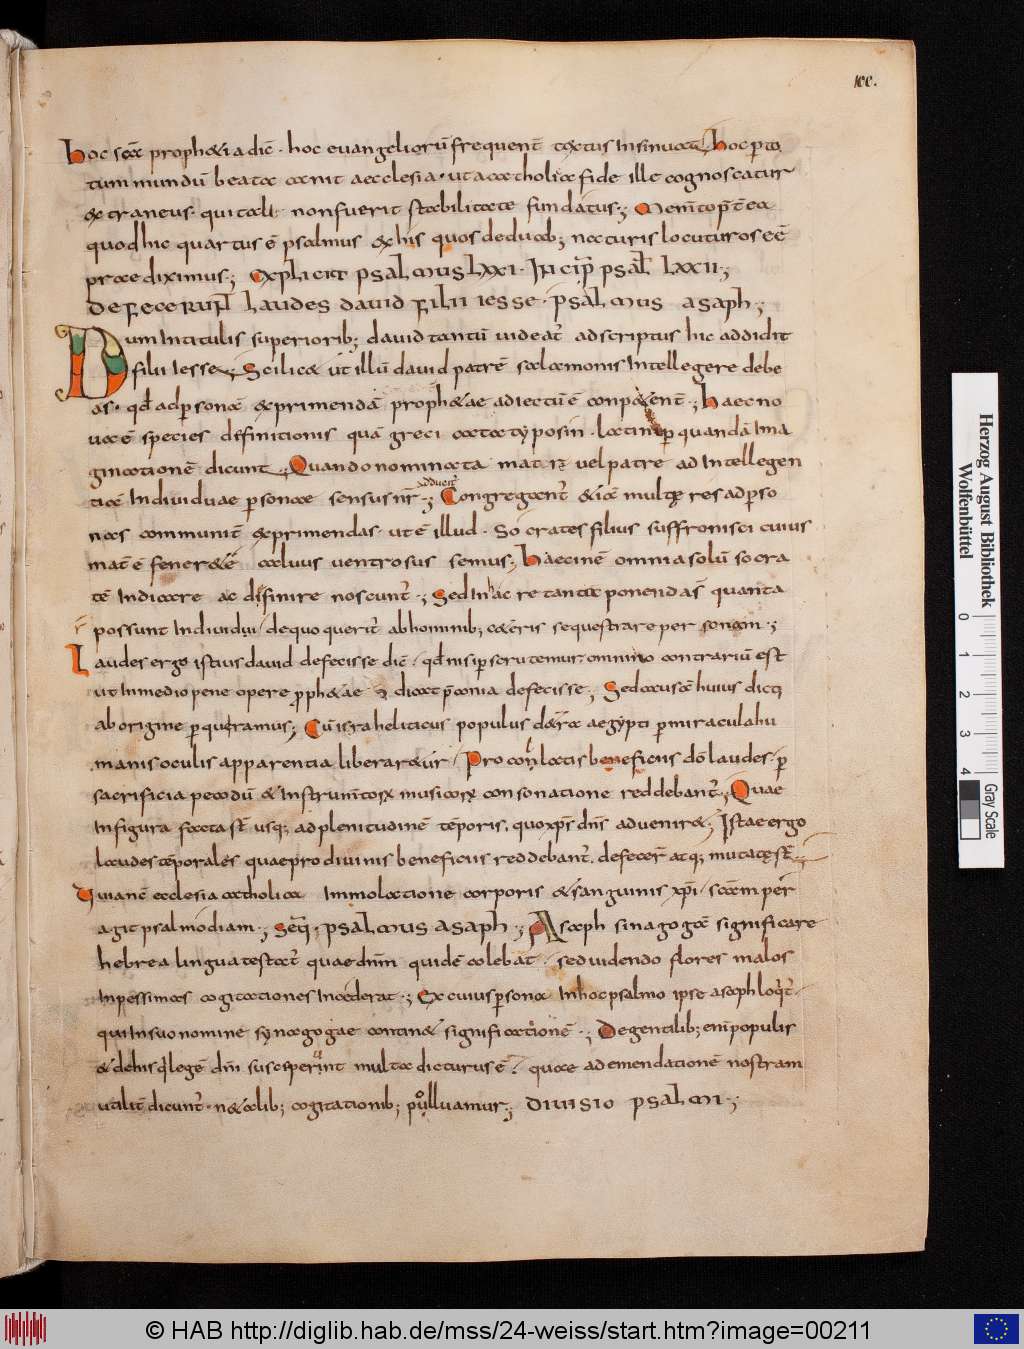 100.
hoc scae prophetiae dic̄ · hoc evangeliorū frequent̄ textus Insinuat; hoc per to
tum mundū beata canit aecclesia · ut a catholica fide ille cognoscatur
extraneus · qui tali non fuerit stabilitate fundatus ·; Mem̄to p̄terea
quod hic quartus ē psalmus ex his quos de duab; naturis locuturos eē
praediximus ·; Explicit psalmus LXXI · Incip̄ psal̄ LXXII ·;
defecerunt laudes david filii iesse · psalmus asaph ·;
Dum In titulis superiorib; david tantū videat̄ adscriptus hic addidit
filii Iesse ·; Scilicet ut illū david patrē salamonis Intellegere debe
as · qd̄ ad personā exprimendā prophetae adiectū ē conpetent̄ ·; haec no
va ē species definitionis quā greci catatyposin · latini per quandā Ima
ginationē dicunt ·; Quando nominata matre vel patre ad Intellegen
tiā Individuae personae sensus nr̄ adducit̄ ·; Congregant̄ etiā multę res ad perso
nas communit̄ exprimendas · ut ē illud · Socrates filius suffronisci cuius
mat̄ ē feneretē calvus ventrosus semus; haec in ē omnia solū socra
tē Indicare ac difinire noscunt̄ ·; Sed In hac re tantae ponendae s̄ quanta
possunt Individui de quo querit̄ ab hominib; ceteris sequestrare personam ·;
Laudes ergo istius david defecisse dic̄ · qd̄ nisi perscrutemur omnino contrariū est
ut In medio pene opere prophetae dicat p̄conia defecisse ·; Sed causā huius dicti
ab origine perquiramus; Cū israheliticus populus de terra aegypti per miracula hu
manis oculis apparentia liberaretur · Pro conlatis beneficiis dō laudes · per
sacrificia pecodū et Instrum̄torum musicorum consonatione reddebant̄ ·; Quae
In figura facta st̄ usq; ad plenitudinē tēporis, quo xps̄ dn̄s adveniret ·; Istae ergo
laudes tēporales quae pro divinis beneficiis reddebant̄ · defecer̄ atq; mutatę st̄ ·;
Qvia nc̄ ecclesia catholica Immolatione corporis et sanguinis xp̄i · scām per
agit psalmodiam ·; Seq̄ · psalmus asaph ·; Asaph sinagogā significare
hebrea lingua testat̄ quae dn̄m quidē colebat · sed videndo flores malos
In pessimas cogitationes Inciderat ·; Ex cuius persona In hoc psalmo ipse asaph loqt̄ ·
qui In suo nomine synagogae continet significationē ·; De gentilib; enī populis
et de his q legē dn̄i susceperunt multa dicturus ē · quae ad emendationē nostram
utilit̄ dicunt̄ · ne talib; cogitationib; polluamur ·; divisio psalmi ·;
Herzog August Bibliothek
Wolfenbüttel
0 1 2 3 4
Gray Scale
© HAB http://diglib.hab.de/mss/24-weiss/start.htm?image=00211